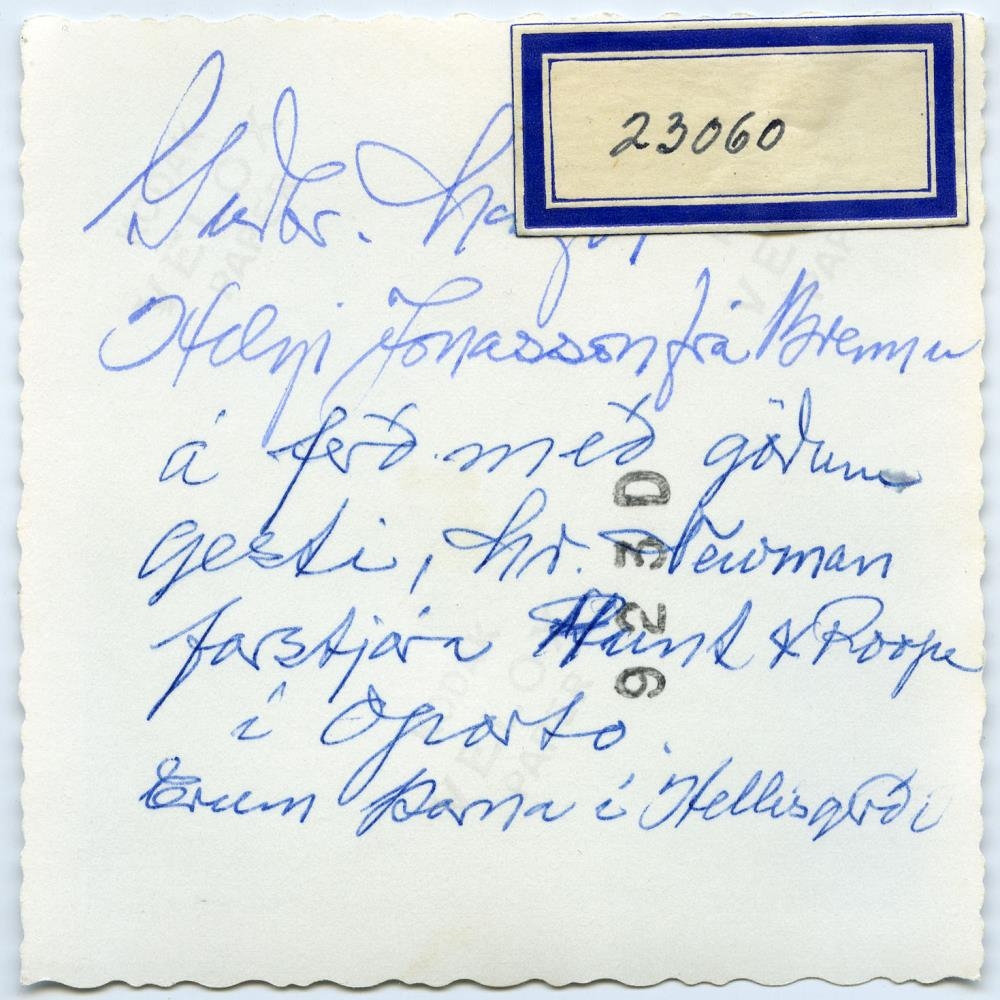 23060
Helgi Jónasson frá Brennu
á ferð með góðum
gesti, hr. Newman
forstjóra Hunt & Roope
í Oporto.
Erum þarna í Hellisgerði
923D
KODAK
VELOX
PAPER